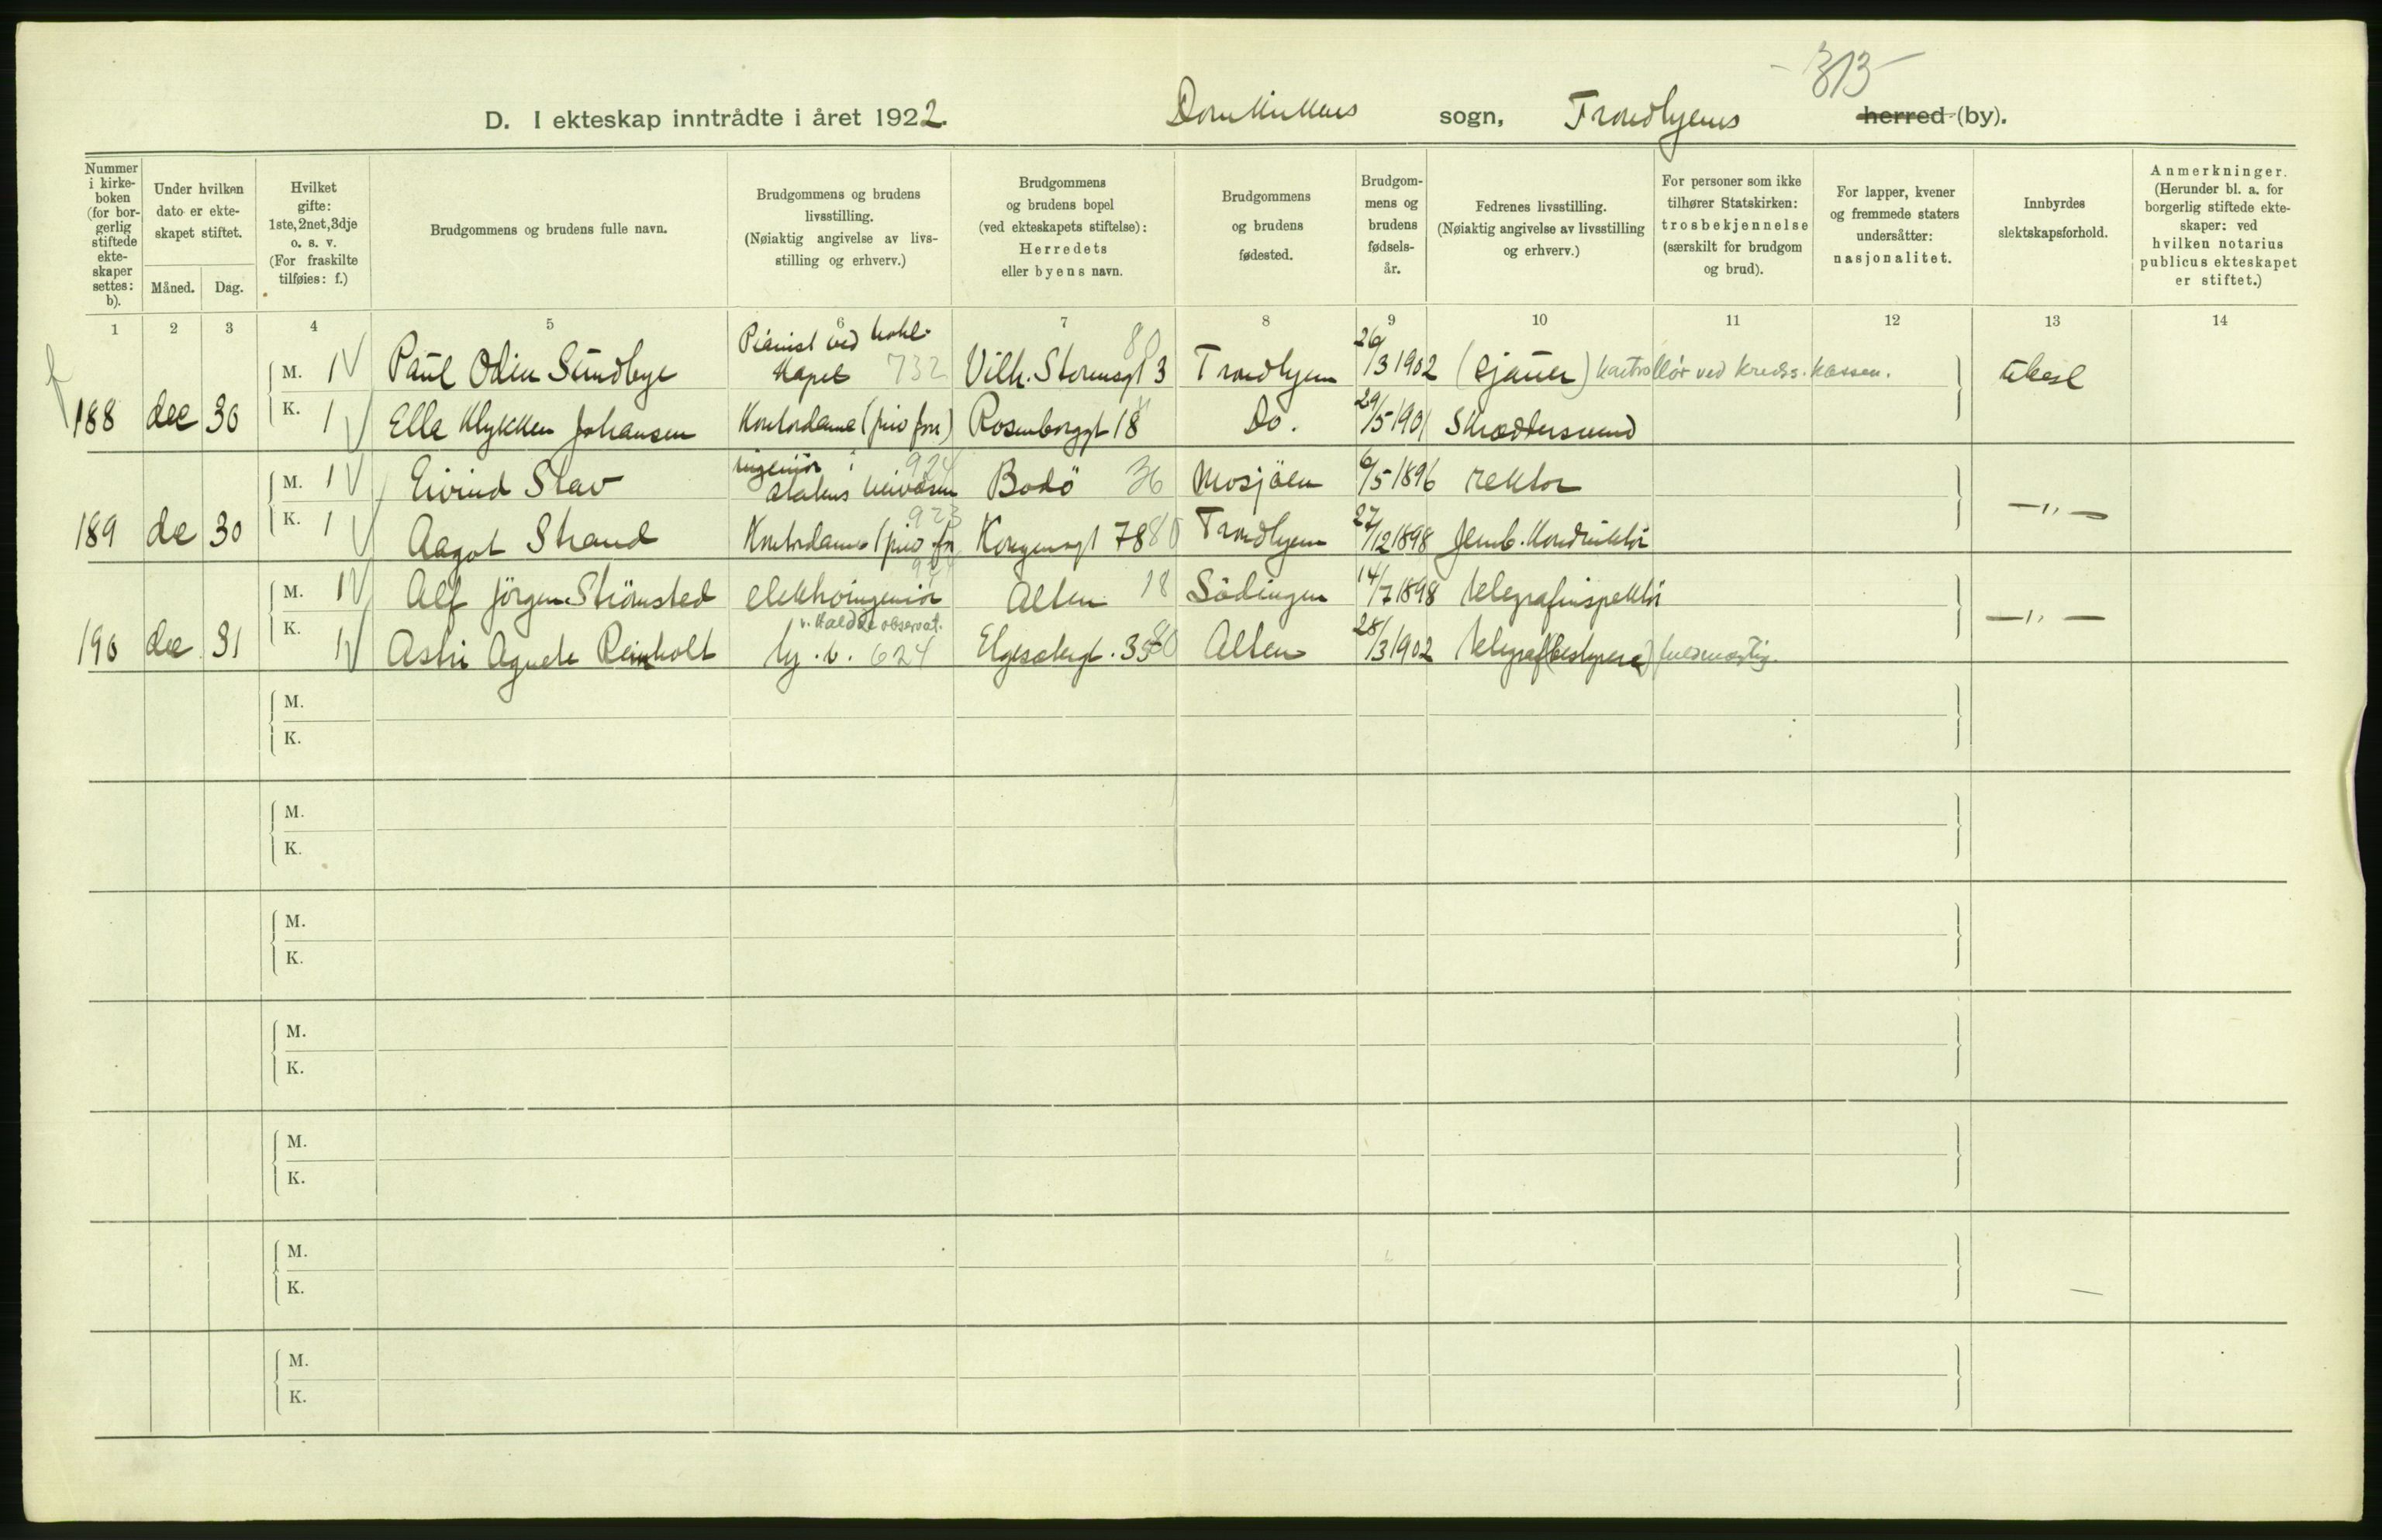 - 313 -
D. I ekteskap inntrådte i året 1922. Domkirkens sogn, Trondhjems herred (by).
Nummer i kirke- boken (for bor- gerlig stiftede ekte- skaper settes: b).
Under hvilken dato er ekte- skapet stiftet.
Måned. Dag.
Hvilket gifte: 1ste, 2net, 3dje o. s. v. (For fraskilte tilføies: f.)
Brudgommens og brudens fulle navn.
Brudgommens og brudens livsstilling. (Nøiaktig angivelse av livs- stilling og erhverv.)
Brudgommens og brudens bopel (ved ekteskapets stiftelse): Herredets eller byens navn.
Brudgommens og brudens fødested.
Brudgom- mens og brudens fødsels- år.
Fedrenes livsstilling. (Nøiaktig angivelse av livsstilling og erhverv.)
For personer som ikke tilhører Statskirken: trosbekjennelse (særskilt for brudgom og brud).
For lapper, kvener og fremmede staters undersåtter: nasjonalitet.
Innbyrdes slektskapsforhold.
Anmerkninger. (Herunder bl. a. for borgerlig stiftede ekte- skaper: ved hvilken notarius publicus ekteskapet er stiftet.)
1 2 3 4 5 6 7 8 9 10 11 12 13 14
M. 1 Paul Odin Sundbye Pianist ved kapel 732 Vilh. Stormsgt 3 80 Trondhjem 26/3 1902 (Sjauer) kontrollør ved kredss. kassen. ubesl
188 dec 30 K. 1 Ella Klykken Johansen Kontordame (priv forr) Rosenborggt 18 " Do. 29/5 1901 Skræddersvend
M. 1 Eivind Stav ingeniør i statens veivæsen 924 Bodö 36 Mosjöen 6/5 1896 rektor
189 de 30 K. 1 Aagot Strand Kontordame (priv fr 923 Kongensgt 78 80 Trondhjem 27/12 1898 Jernb. Konduktör — " —
M. 1 Alf Jörgen Strömsted elektroingeniör v. Haldde observat. Alten 18 Lödingen 14/7 1898 telegrafinspektör
190 dec 31 K. 1 Astri Agnete Reinholt hj. v. 624 Elgesætergt. 35 80 Alten 28/3 1902 telegraf(bestyrer) fuldmægtig. — " —
M.
K.
M.
K.
M.
K.
M.
K.
M.
K.
M.
K.
M.
K.